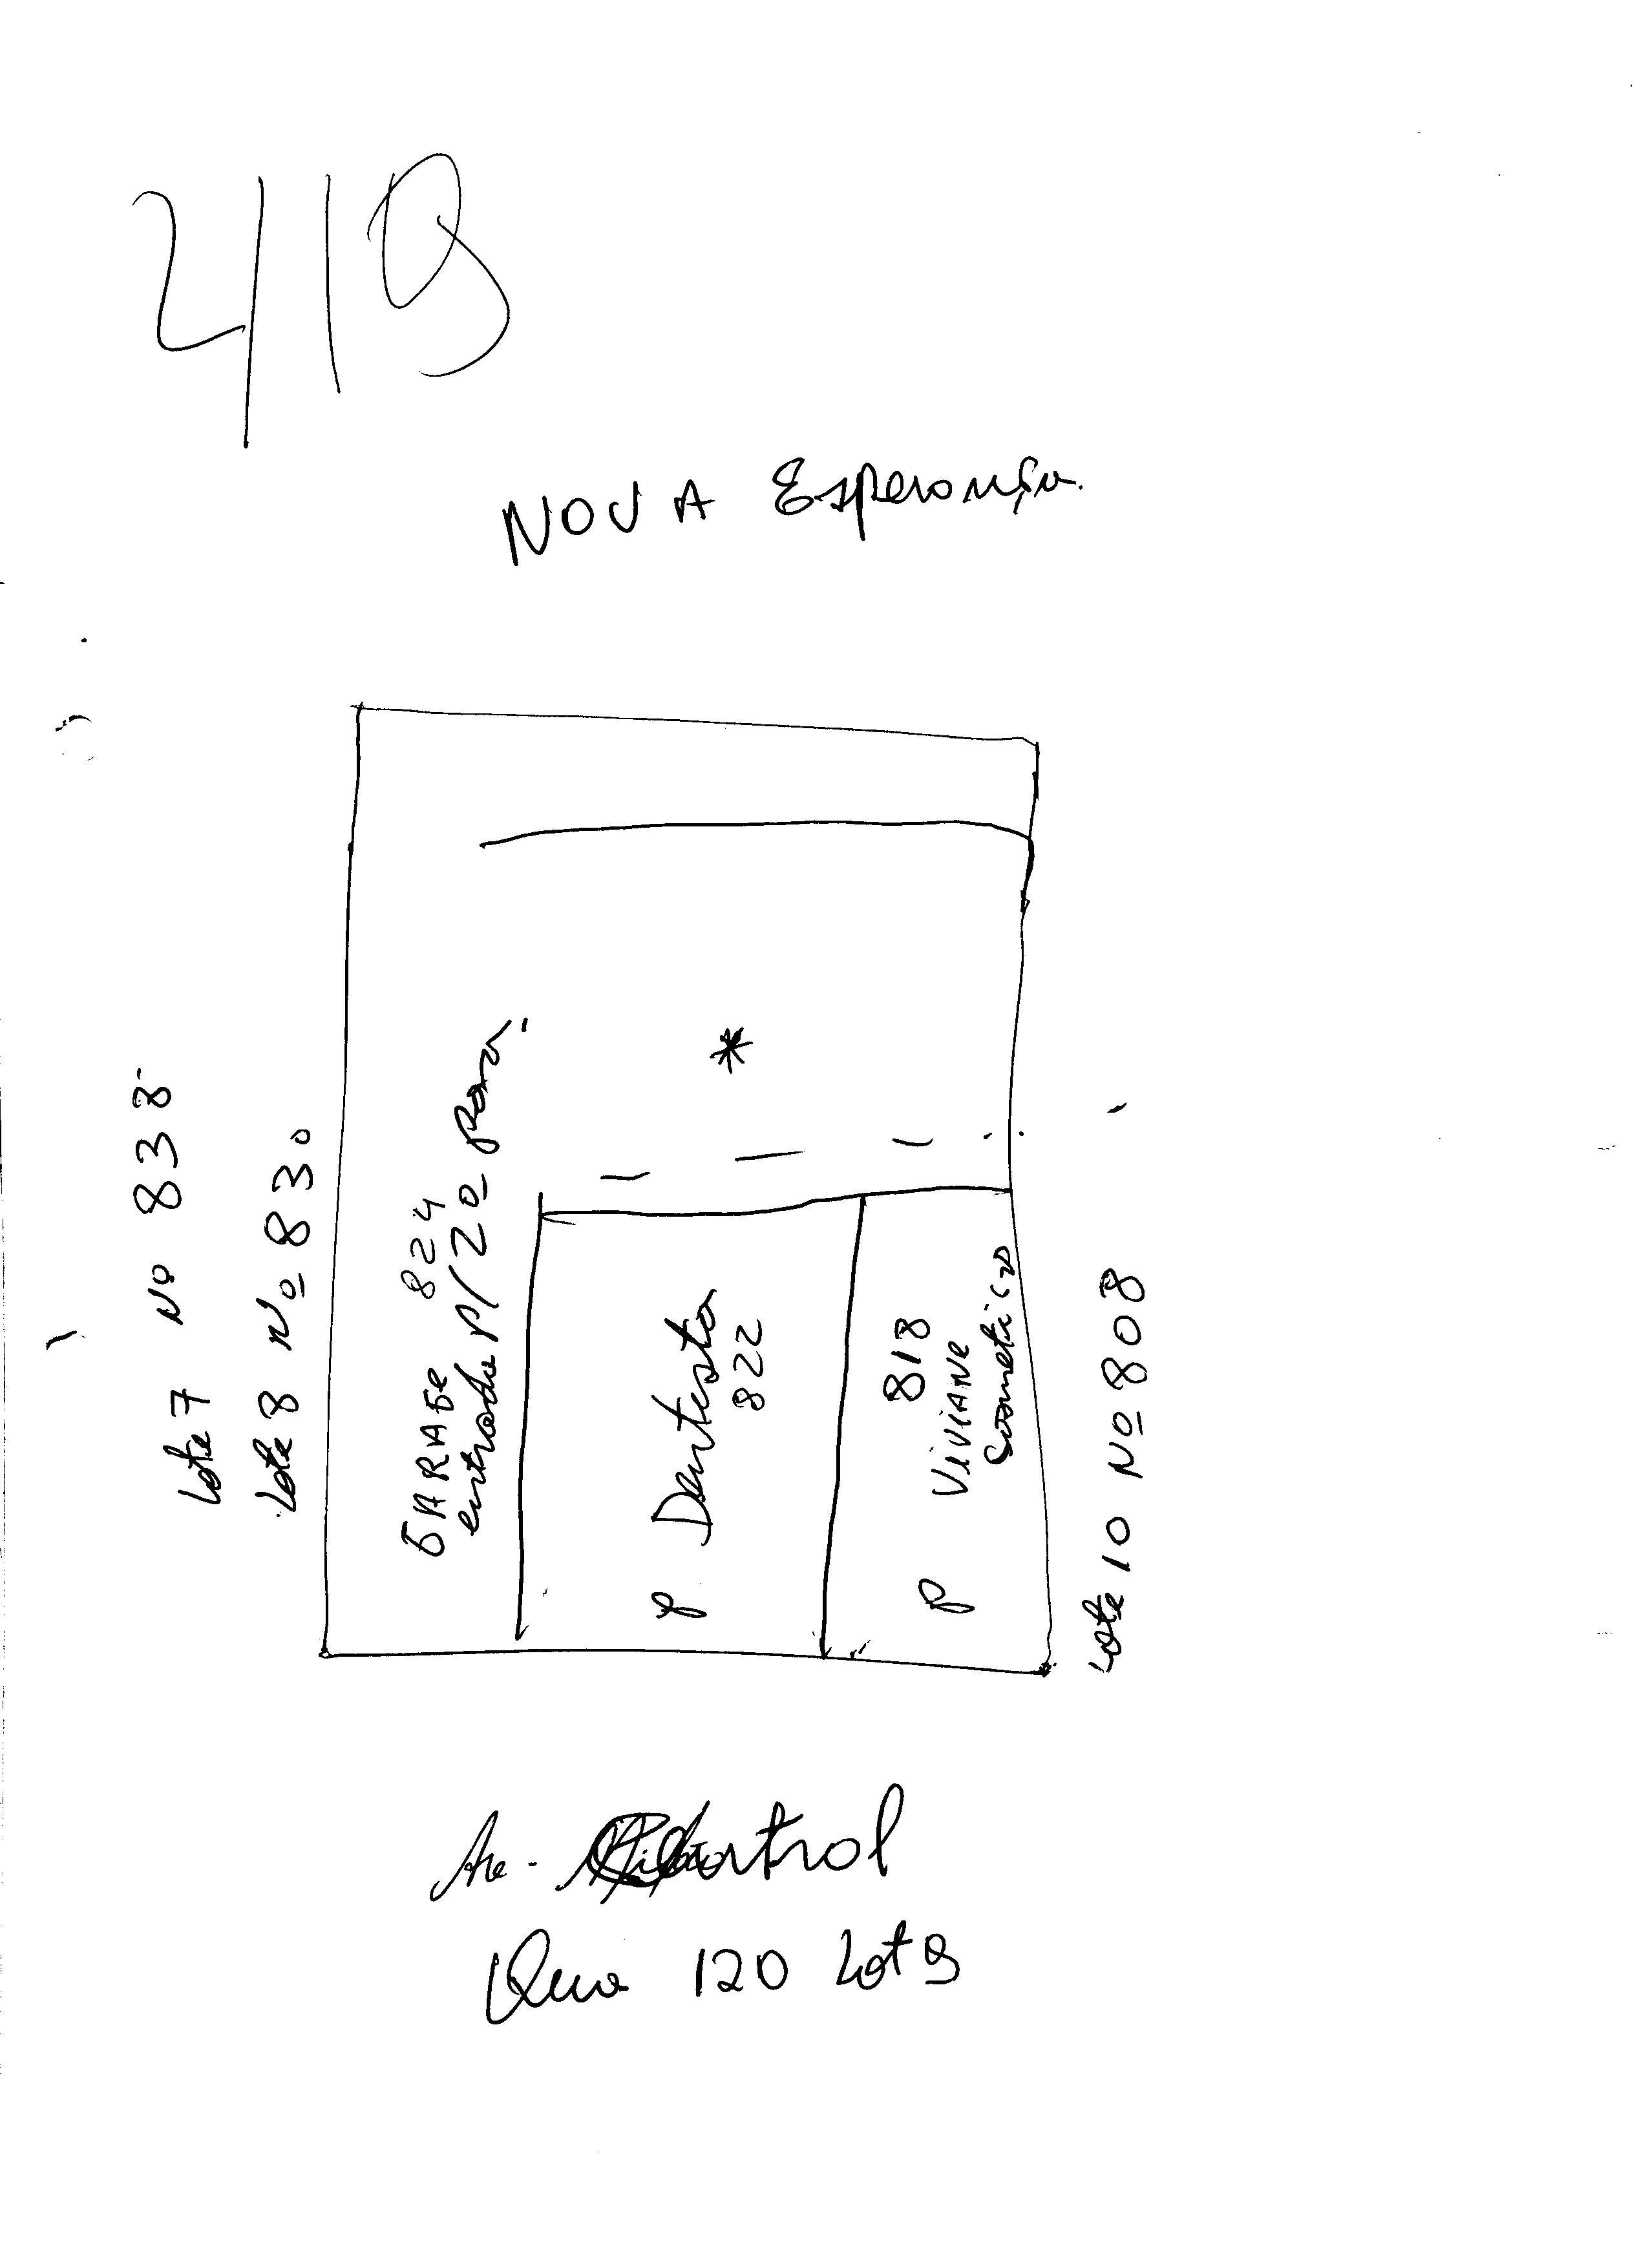 2/19
NOVA Esperança.
Lote 7 Nº 838
Lote 8 Nº 830
GARAGE 824
entrada p/ 2º pav.
*
P Dentista
822
P 818
ViViANE
Cosmetico
Lote 10 Nº 808
Av. Central
120 Lot 9